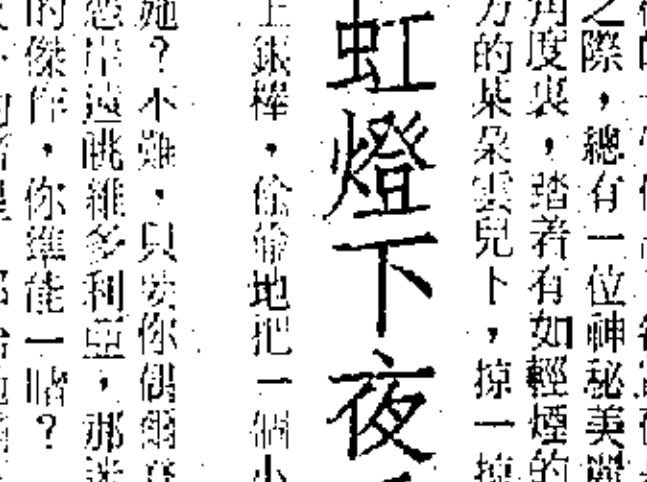 之際，總有一位神秘美麗
角度裏，踏着有如輕煙的
方的某朵雲兒下，掠一掠
虹燈下夜
上銀樺，偷偷地把一個小
她？不難，只要你偶爾
岸遠眺維多利亞，那
的傑作，你誰能一睹？